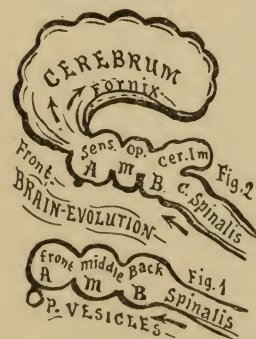 CEREBRUM
Fornix
Sens. Op. Cer. Im
A M B. C. Spinalis
Fig. 2
Front.
BRAIN-EVOLUTION
Fig. 1
front middle Back
A M B Spinalis
P. VESICLES